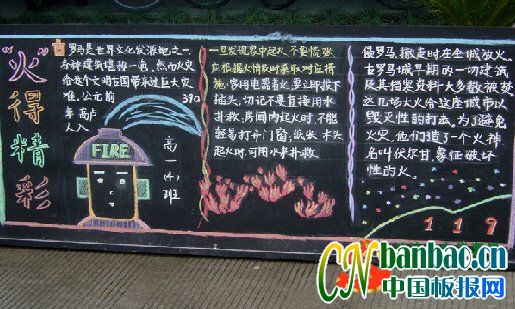 “火”得精彩
古罗马是世界文化发源地之一
各种建筑堪称一名,然而火灾
给这个文明古国带来过巨大灾
难,公元前390
年高卢
人入
FIRE
高一(4)班
一旦发现家中起火,不要慌张,
应根据火情及时采取对应措
施,家用电器着火,要立即拔下
插头,切记不要直接用水
扑救,房间内起火时,不能
轻易打开门窗,纸张、木头
起火时,可用水来扑救
侵罗马,撤走时在全城放火,
古罗马城早期的一切建筑
及其指定资料大多数被焚
这几场大火给这座城市以
毁灭性的打击,为了避免
火灾,他们造了一个火神
名叫伏尔甘,象征破坏
性的火。
119
CNbanbao.cn
中国板报网